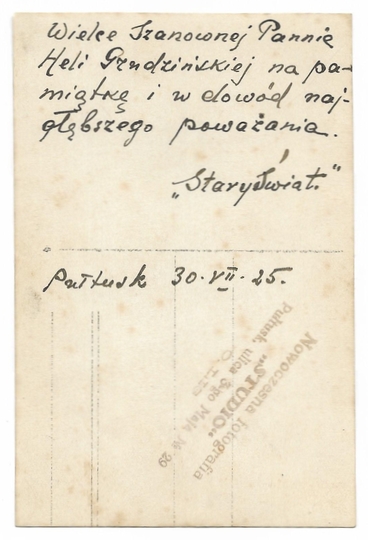 Wielce Szanownej Pannie
Heli Grudzińskiej na pa-
miątkę i w dowód naj-
głębszego poważania.
„Stary Świat."
Pułtusk 30·VII·25.
Nowoczesna fotografia
„STUDIO"
Pułtusk, ulica 3-go Maja № 29